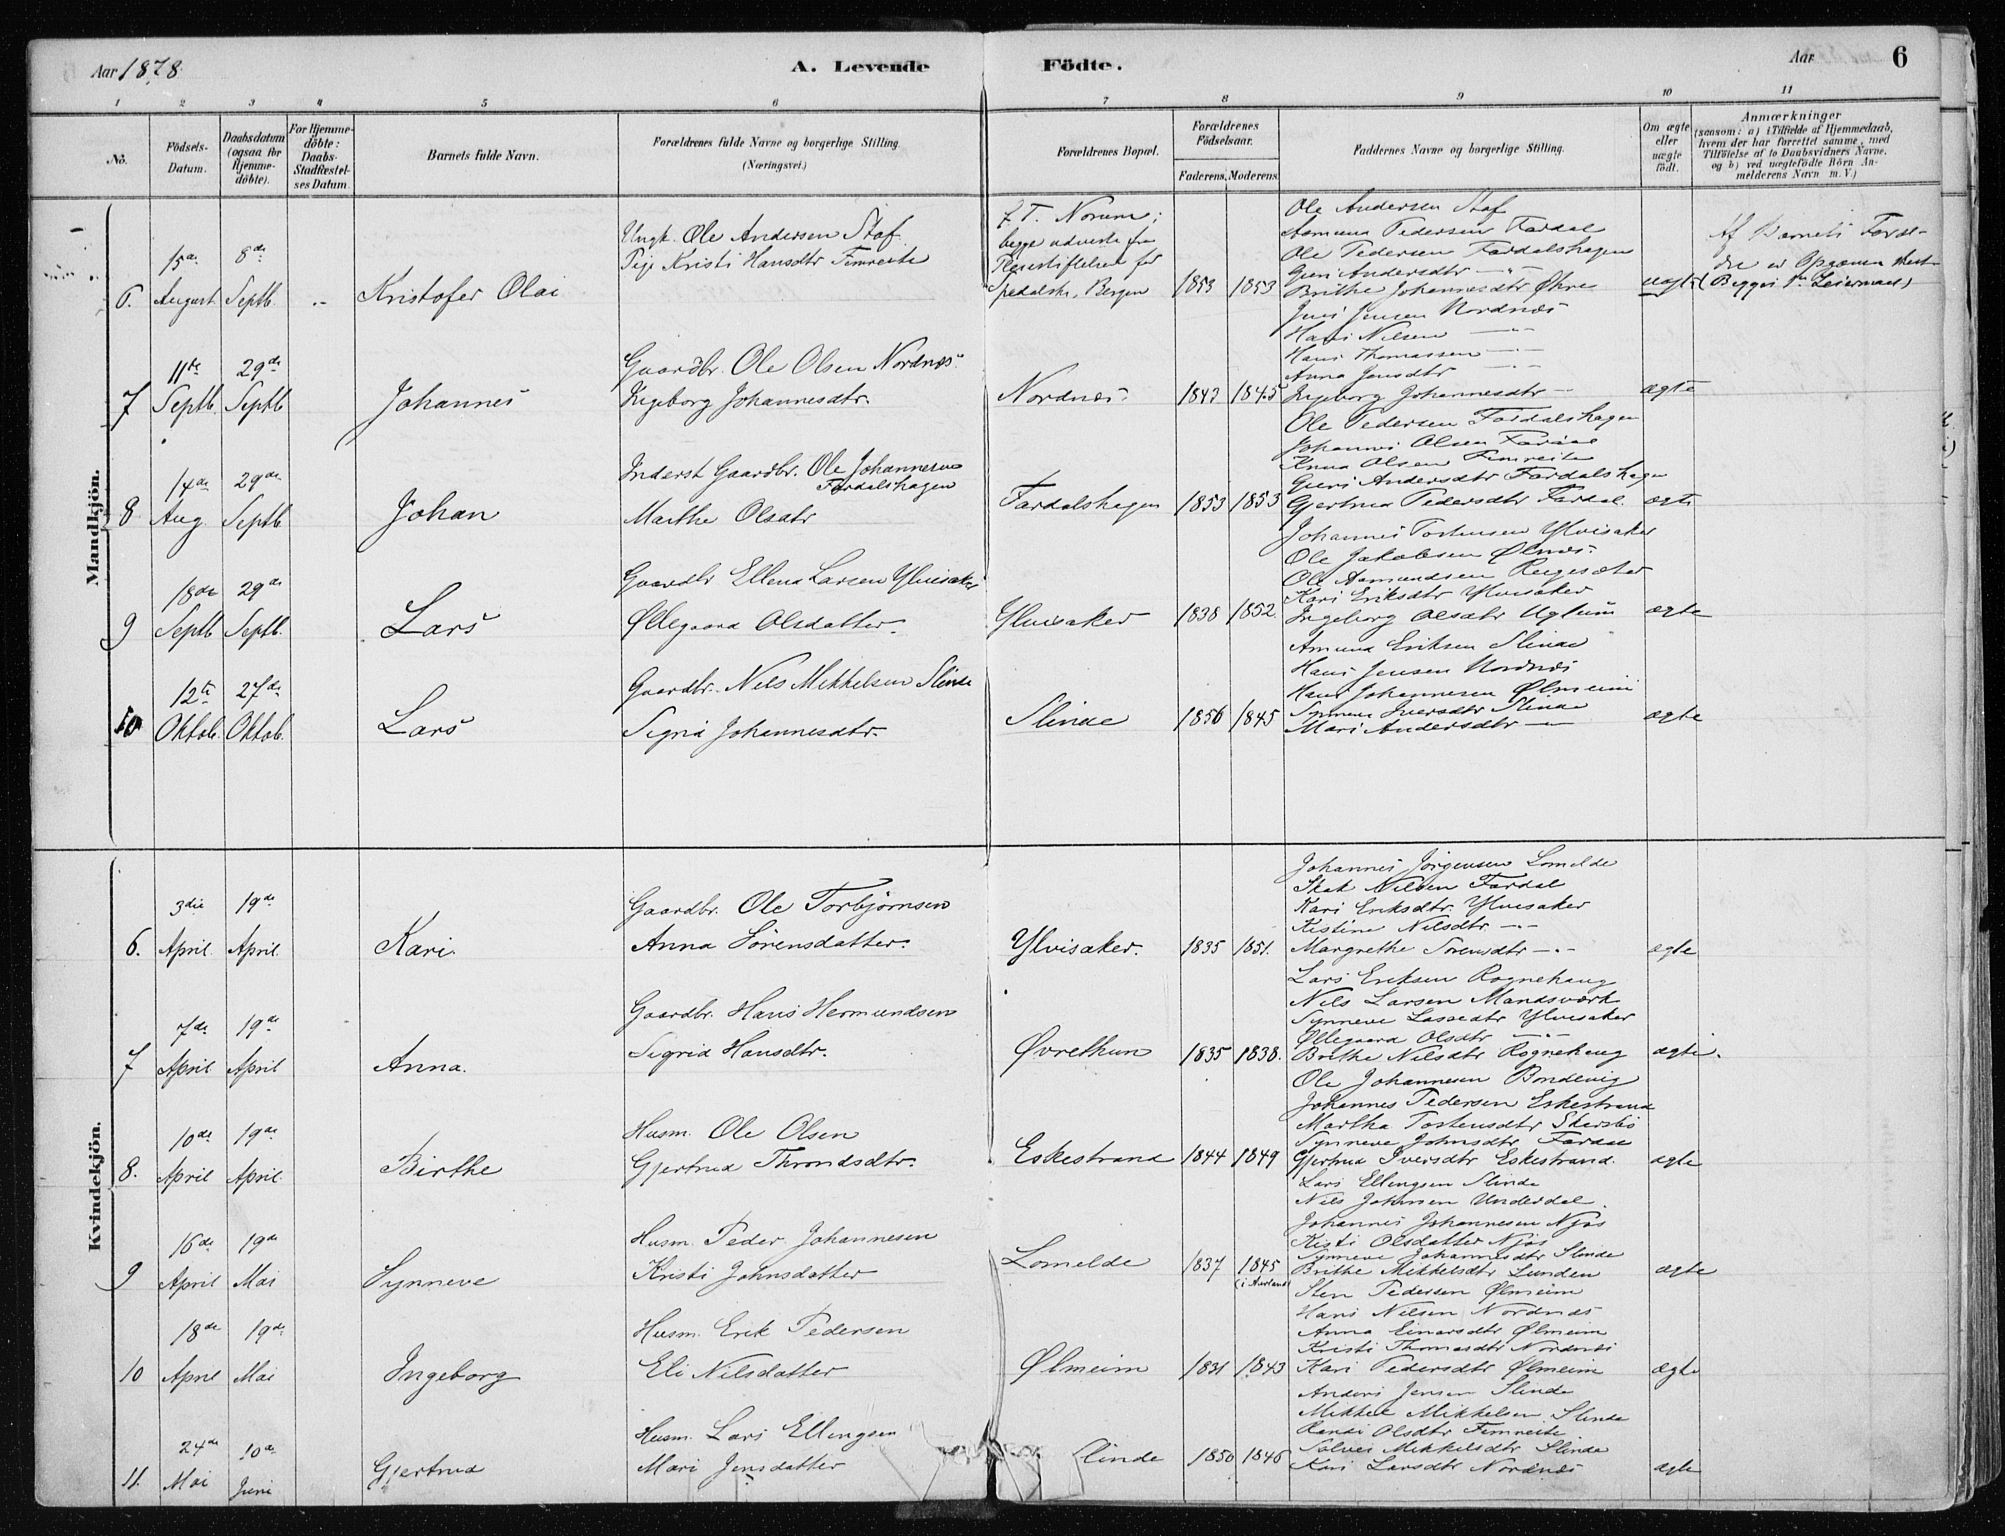 Aar 1878. A. Levende Födte. Aar 6
1 2 3 4 5 6 7 8 9 10 11
No. Födsels-Datum. Daabsdatum (ogsaa for Hjemme-döbte). For Hjemme-döbte: Daabs-Stadfæstel-ses Datum. Barnets fulde Navn. Forældrenes fulde Navne og borgerlige Stilling. (Næringsvei.) Forældrenes Bopæl. Forældrenes Födselsaar. Faderens. Moderens. Faddernes Navne og borgerlige Stilling. Om ægte eller uægte födt. Anmærkninger (saasom: a) i Tilfælde af Hjemmedaab, hvem der har forrettet samme, med Tilföielse af to Daabsvidners Navne, og b) ved uægtefödte Börn Anmelderens Navn m. V.)
Mandkjön.
6. 15de August 8de Septb. Kristofer Olai
Ungk. Ole Andersen Staf.
Pige Kristi Hansdtr Fimreite
Z. T. Norum;
begge udviste fra
Pleiestiftelsen for
Spedalske, Bergen
1853 1853
Ole Andersen Staf
Aamund Pedersen Fardal
Ole Pedersen Fardalshagen
Guri Andersdtr -"-
Brithe Johannesdtr Økre
uægte
Af Barnets Foræl-
dre er Opgaven
(Begges 1ste Leiermaal)
7 11te Septb. 29de Septb. Johannes
Gaardbr. Ole Olsen Nordnæs.
Ingeborg Johannesdtr.
Nordnæs 1842 1845
Jens Jensen Nordnæs
Hans Nilsen -"-
Hans Thomassen -"-
Anna Jensdtr -"-
Ingeborg Johannesdtr -"-
ægte
8 14de Aug. 29de Septb. Johan
Inderst Gaardbr. Ole Johannesen
Fardalshagen
Marthe Olsdtr
Fardalshagen 1853 1853
Ole Pedersen Fardalshagen
Johannes Olsen Fardal
Knud Olsen Fimreite
Guri Andersdtr Fardalshagen
Gjertrud Pedersdtr Fardal.
ægte
9 18de Septb. 29de Septb. Lars
Gaardbr Elling Larsen Ylvisaker
Øllegaard Olsdatter.
Ylvisaker 1838 1852.
Johannes Torstensen Ylvisaker
Ole Jakobsen Ølnæs.
Ole Aamundsen Rugesæter
Kari Eriksdtr Ylvisaker
Ingeborg Olsdtr Uglum
ægte
10 12te Oktob. 27de Oktob. Lars
Gaardbr. Nils Mikkelsen Slinde
Sigrid Johannesdtr.
Slinde 1856 1845
Amund Eriksen Slinde
Hans Jensen Nordnæs
Hans Johannesen Ølmeim
Synneve Iversdtr Slinde
Mari Andersdtr -"-
ægte
Kvindekjön.
6. 3die April. 19de April. Kari.
Gaardbr. Ole Torbjørnsen
Anna Sørensdatter.
Ylvisaker. 1835 1851.
Johannes Jørgensen Lomelde
Skak Nilsen Fardal
Kari Eriksdtr. Ylvisaker
Kistine Nilsdtr -"-
Margrethe Sorensdtr -"-
ægte
7 7de April 19de April Anna.
Gaardbr. Hans Hermundsen
Sigrid Hansdtr.
Øvrethun 1835 1838.
Lars Eriksen Rognehaug
Nils Larsen Mandsværk
Synneve Lassedtr Ylvisaker
Øllegaard Olsdtr -"-
Brithe Nilsdtr Rognehaug
ægte.
8. 10de April 19de April. Birthe
Husm. Ole Olsen
Gjertrud Throndsdtr.
Eskestrand 1844 1849
Ole Johannesen Bondevig
Johannes Pedersen Eskestrand
Martha Torstensdtr Skersbo
Synneve Johnsdtr Fardal
Gjertrud Iversdtr Eskestrand.
ægte
9 16de April 19de Mai Synneve
Husm. Peder Johannesen
Kristi Johnsdatter
Lomelde 1837 1845
(i Aurland)
Lars Ellingsen Slinde
Nils Johnsen Underdal.
Johannes Johannesen Njøs
Kisti Olsdatter Njøs
Synneve Johannesdtr Slinde
Brithe Mikkelsdtr Lunden
ægte
10 18de April 19de Mai Ingeborg
Husm. Erik Pedersen
Eli Nilsdatter
Ølmeim 1831 1843
Sten Pedersen Ølmeim
Hans Nilsen Nordnæs
Anna Einarsdtr Ølmeim
Kristi Thomasdtr Nordnæs
Kari Pedersdtr Ølmeim
ægte
11. 24de Mai 10de Juni Gjertrud
Husm. Lars Ellingsen
Mari Jensdatter
Slinde 1850 1846
Anders Jensen Slinde
Mikkel Mikkelsen Slinde
Randi Olsdtr Fimreite
Solvei Mikkelsdtr Slinde
Kari Larsdtr Nordnæs
ægte